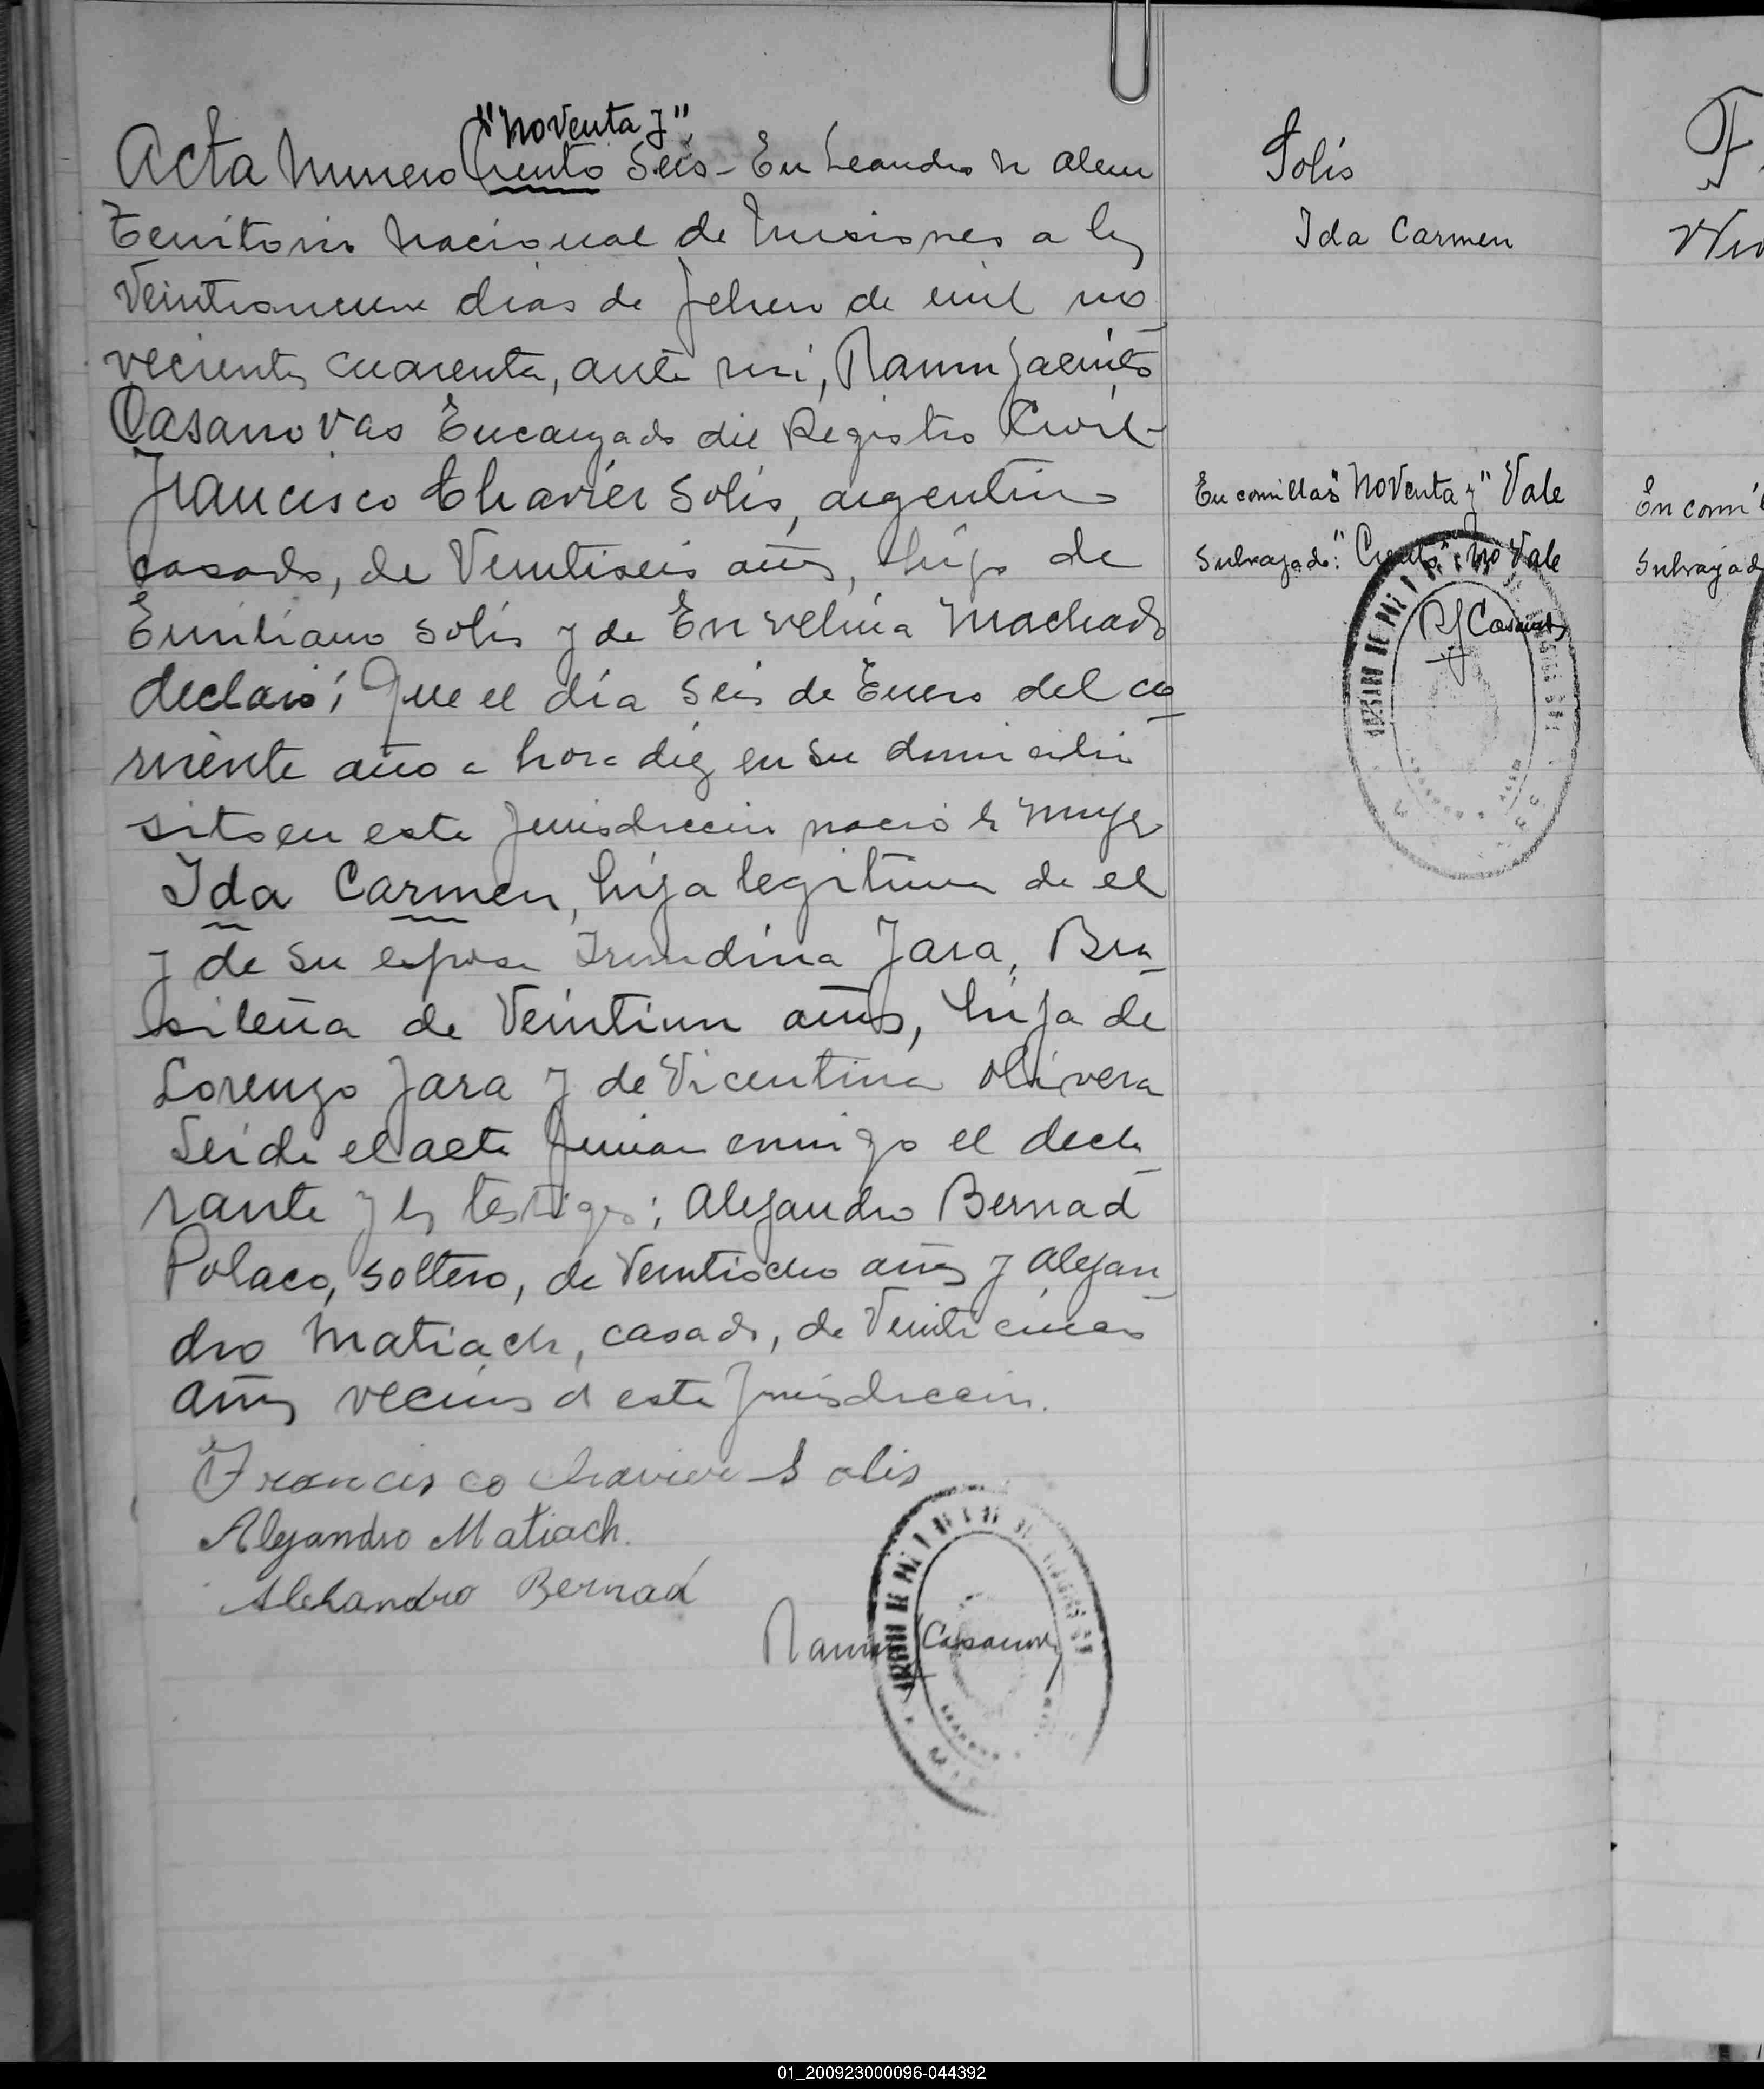 "Noventa y"
Acta Numero Ciento Seis - En Leandro N Alem
Territorio Nacional de Misiones a los
Veintinueve dias de febrero de mil no
vecientos cuarenta, ante mi, Ramon Jacinto
Casanovas Encargado del Registro Civil -
Francisco Chavier Solis, argentino
casado, de Veintiseis años, hijo de
Emiliano Solis y de Envelina Machado
declaró; Que el día Seis de Enero del co
rriente año a hora diez en su domicilio
sito en esta Jurisdiccion nació la mujer
Ida Carmen, hija legitima de el
y de su esposa Irundina Jara, Bra
sileña de Veintiun años, hija de
Lorenzo Jara y de Vicentina Olivera
Leida el acta firman conmigo el decla
rante y los testigos; Alejandro Bernad
Polaco, soltero, de Veintiocho años y Alejan
dro Matiach, casado, de Veinticinco
años vecinos d esta Jurisdiccion.
Francisco Chavier Solis
Alejandro Matiach.
Alehandro Bernad
Ramon J Casanovas
Solis
Ida Carmen
En comillas "Noventa y" Vale
Subrayado: "Ciento" no Vale
RJ Casanovas
En comi
Subrayad
01_200923000096-044392